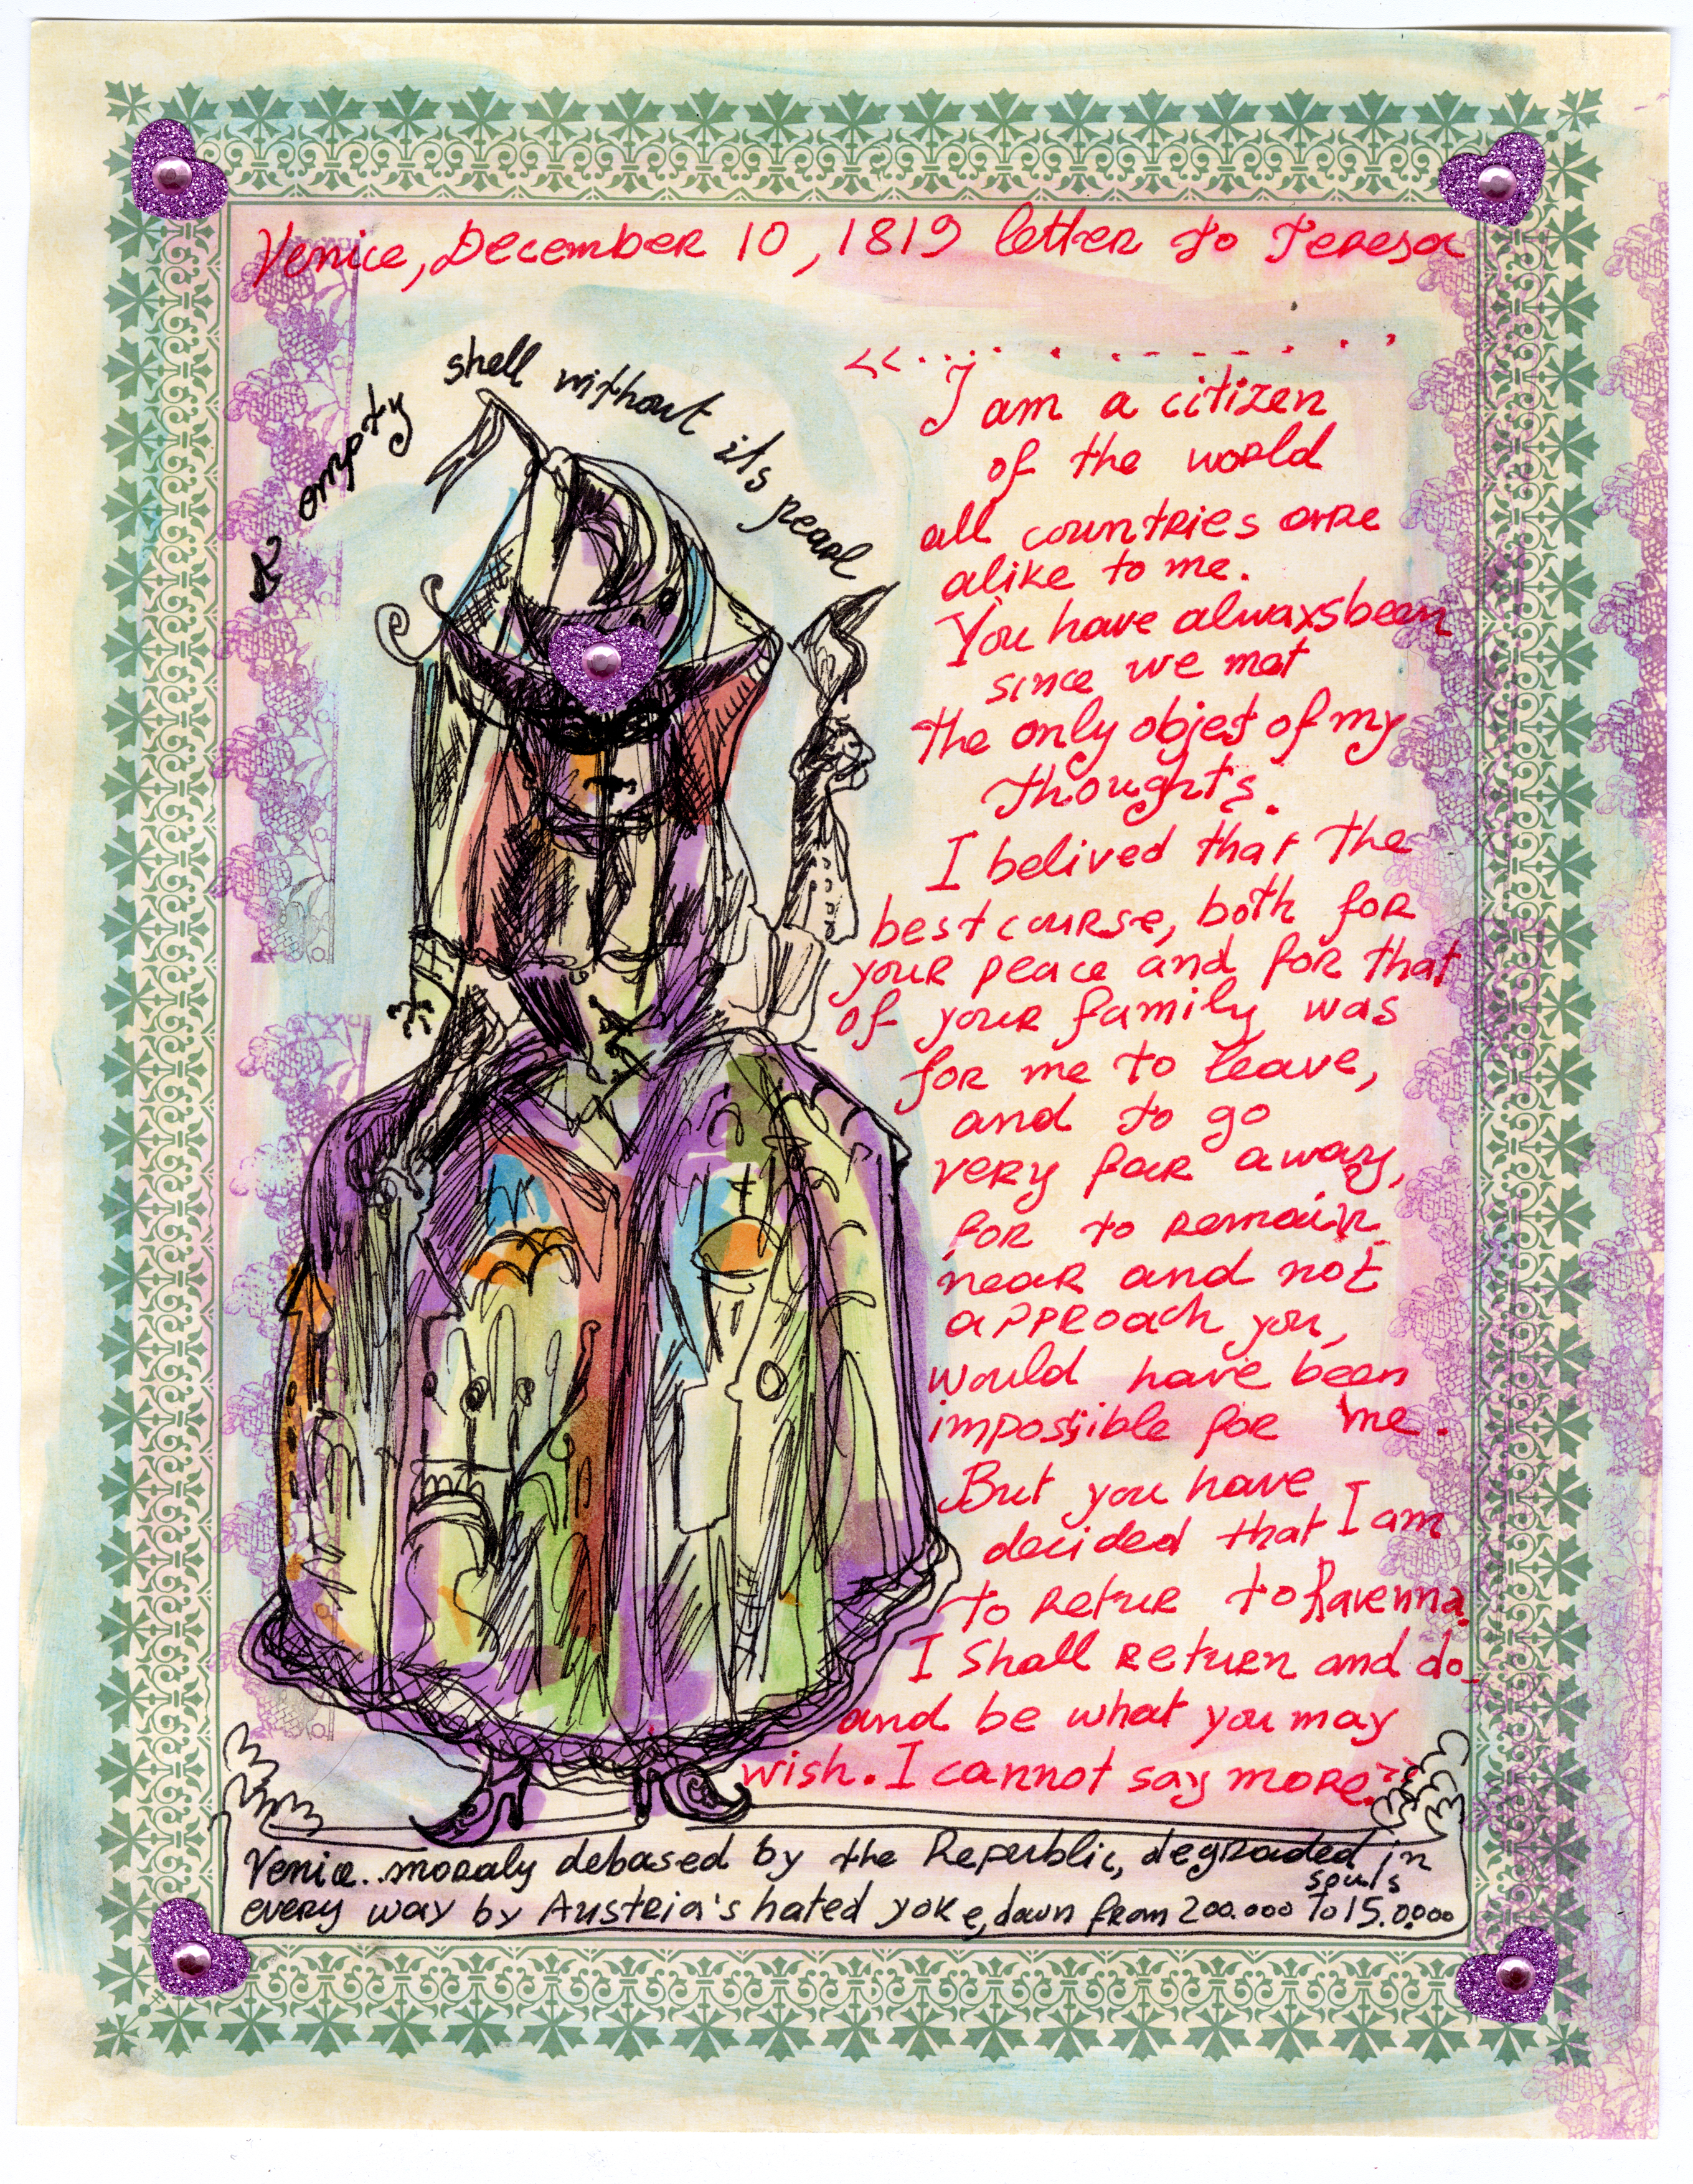 Venice, December 10, 1819 letter to Teresa
empty shell without its pearl
<<..................
I am a citizen
of the world
all countries are
alike to me.
You have alwaxsbeen
since we met
the only objet of my
thoughts.
I belived that the
best course, both for
your peace and for that
of your family was
for me to leave,
and to go
very far away,
for to remain
near and not
approach you,
would have been
impossible for me.
But you have
decided that I am
to retur to Ravenna.
I shall return and do_
and be what you may
wish. I cannot say more.>>
Venice...moraly debased by the Republic, degraded in
souls
every way by Austria's hated yoke, down from 200.000 to 15.0.000